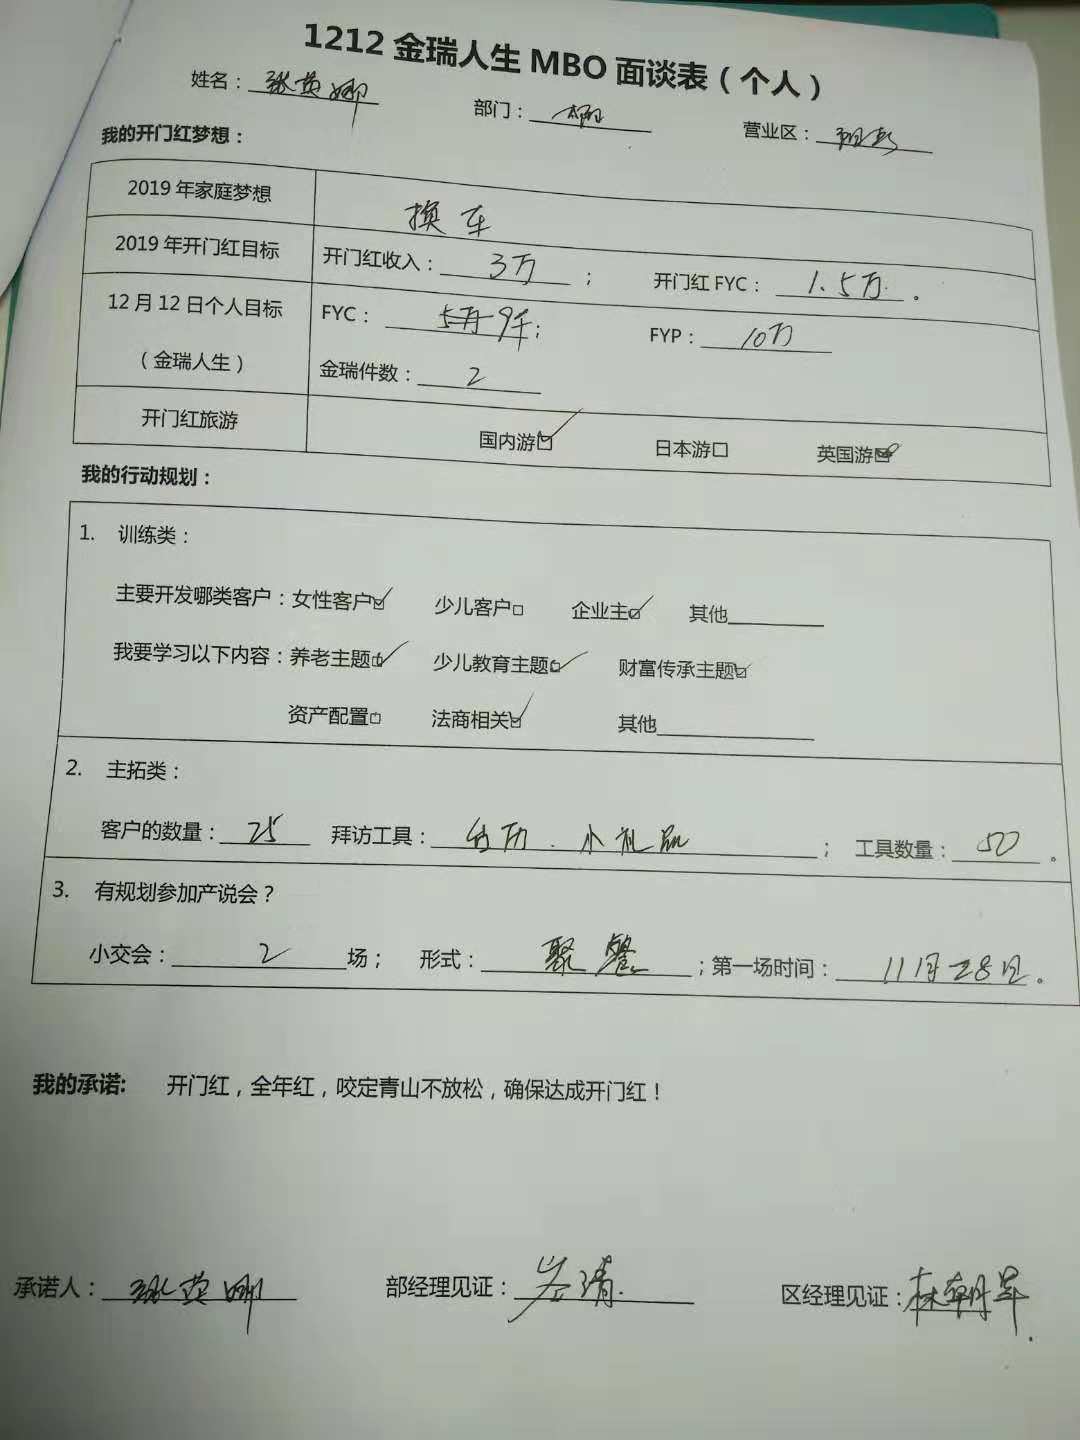 1212 金瑞人生 MBO 面谈表（个人）
姓名：张英娜 部门： 营业区：
我的开门红梦想：
2019 年家庭梦想 换车
2019 年开门红目标 开门红收入：3万； 开门红 FYC：1.5万。
12 月 12 日个人目标 FYC：5万 9千； FYP：10万
（金瑞人生） 金瑞件数：2
开门红旅游 国内游☑ 日本游□ 英国游☑
我的行动规划：
1. 训练类：
主要开发哪类客户：女性客户☑ 少儿客户□ 企业主☑ 其他
我要学习以下内容：养老主题☑ 少儿教育主题☑ 财富传承主题☑
资产配置□ 法商相关☑ 其他
2. 主拓类：
客户的数量：25 拜访工具：台历、小礼品； 工具数量：50。
3. 有规划参加产说会？
小交会：2场； 形式：聚餐；第一场时间：11月28日。
我的承诺： 开门红，全年红，咬定青山不放松，确保达成开门红！
承诺人：张英娜 部经理见证： 区经理见证：林朝军